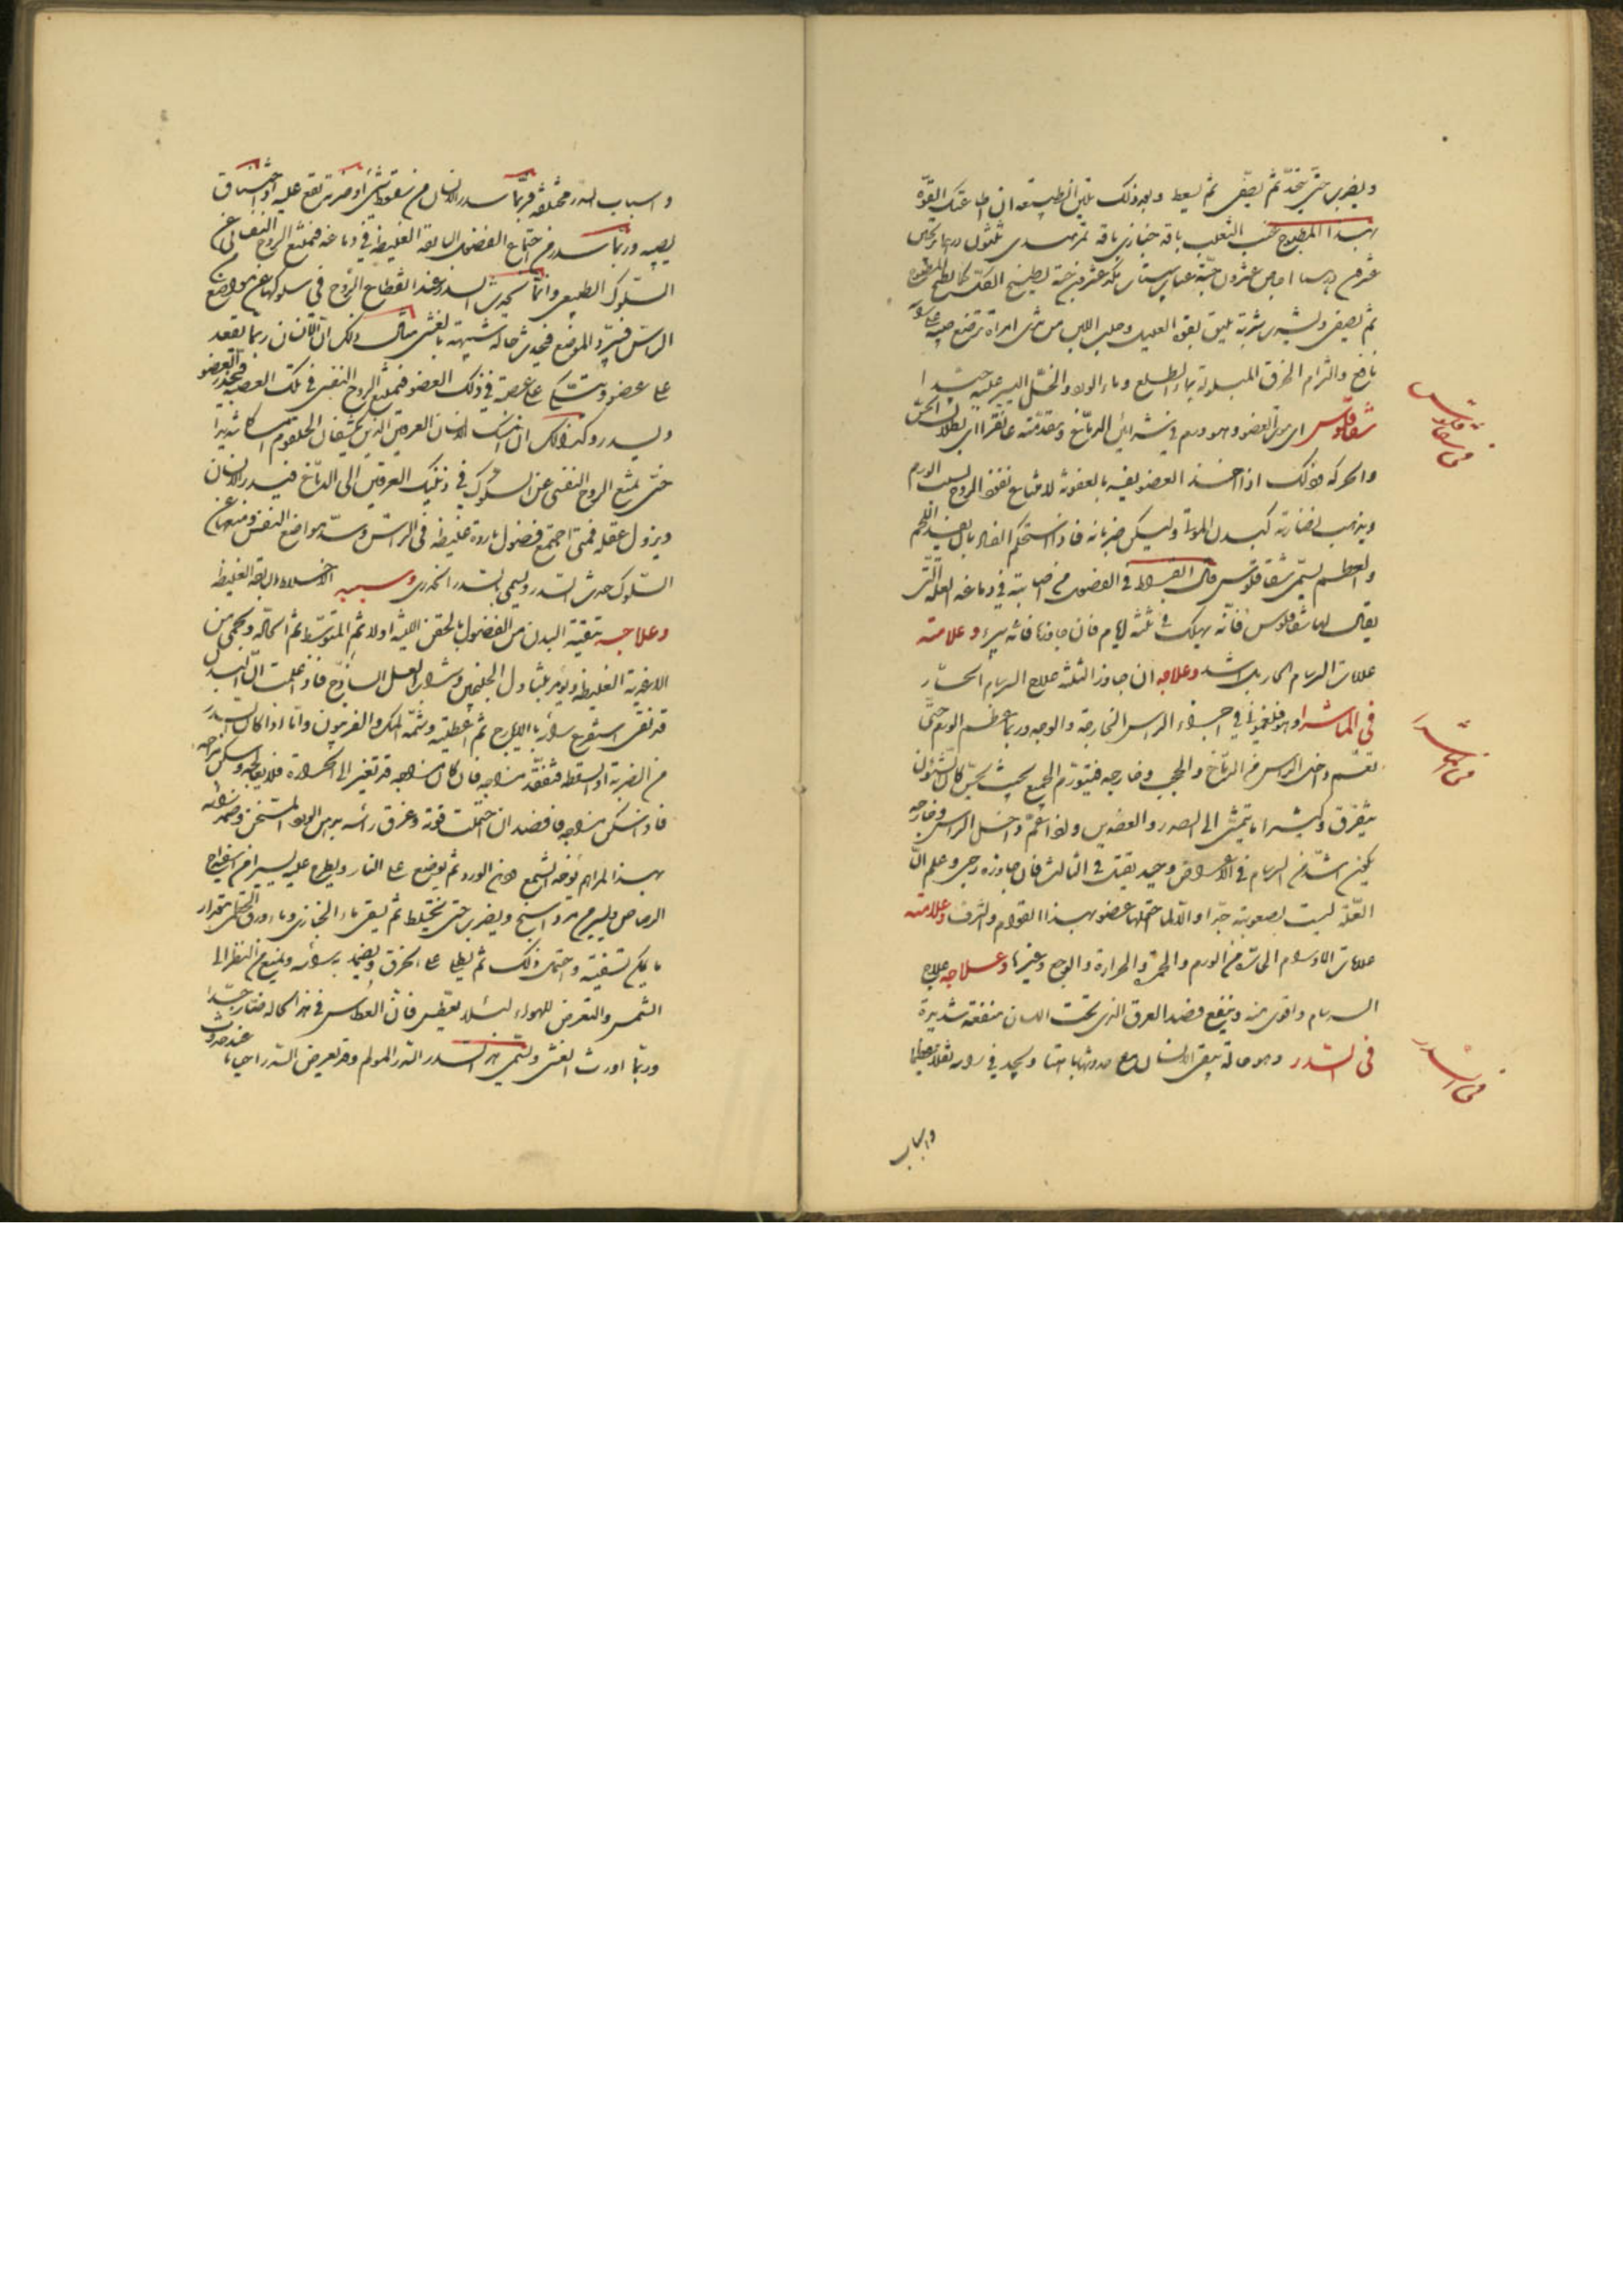 ويضرب حتى يتحد ثم يصفى ثم يسعط وبعد ذلك تلين الطبيعة ان اطاعتك القوة
بهذا المطبوخ عنب الثعلب باقة خبازى باقة تمر هندى ثلثون درهما
عشرون حبة عناب سپستان عشرين حبة يطبخ الكل كما يطبخ المطبوخ
ثم يصفى ويشرب شربة تليق بقوة العليل وحلب اللبن من ثدى امراة ترضع صبية على
والزام الخرق المبلولة بماء الورد والخل اليسير عليه جيدا
شقاقلوس اى موت العضو وهو ورم فى شرائين الدماغ ومقدمته غانغرايا اى بطلان الحس
والحركة وذلك اذا اخذ العضو بالعفونة لامتناع نفوذ الروح بسبب الورم
ويذهب نضارته كبدن الموتى ويسكن ضربانه فاذا استحكم الفساد بان يفسد اللحم
والعظم يسمى شقاقلوس قال ابقراط فى الفصول من اصابته فى دماغه العلة التى
يقال لها شقاقلوس فانه يهلك فى ثلثة ايام فان جاوزها فانه يبرء وعلامته
علامات السرسام الحار بل اشد وعلاجه ان جاوز الثلثة علاج السرسام الحار
فى الماشرا وهو فلغمونى فى اجزاء الراس الخارجة والوجه وربما عظم الورم حتى
تعم داخل الراس من الدماغ والحجب وخارجه فيتورم الجميع بحيث يحس كان الشئون
يتفرق وكثيرا ما يتمشى الى الصدر والعضدين واذا عم داخل الراس وخارجه
يكون اشد من السرسام فى الاعراض وحينئذ يقتل فى الثالث فان جاوزه رجى وعلم ان
العلة ليست بصعوبته جدا والا لما احتملها عضو بهذا القوام والشرف وعلامته
علامات الاورام الحارة من الورم والحمرة والحرارة والوجع وغيرها وعلاجه علاج
السرسام واقوى منه وينفع فصد العرق الذى تحت اللسان منفعة شديدة
فى السدر وهو حالة يبقى الانسان مع حدوثها باهتا ويجد فى راسه ثقلا عظيما
فى شقاقلوس
فى الماشرا
فى السدر
واسباب
واسباب السدر مختلفة فربما سدر الانسان من سقوط شئ او ضربة تقع عليه او اختناق
يصيبه وربما سدر من اجتماع الفضول الباردة الغليظة فى دماغه فيمتنع الروح النفسانى عن
السلوك الطبيعى وانما يحدث السدر عند انقطاع الروح فى سلوكها عن مواضع من
الراس فيبرد الموضع فيحدث حالة شبيهة بالغشى مثال ذلك ان الانسان ربما يقعد
على عضو ويتكى على عصبة فى ذلك العضو فيمتنع الروح النفسى فى تلك العصبة فيخدر العضو
ويسدر وكذلك ان امسك الانسان العرقين الذين يكتنفان الحلقوم امساكا شديدا
حتى يمتنع الروح النفسى عن السلوك فى ذينك العرقين الى الدماغ فيسدر الانسان
ويزول عقله فمتى اجتمع فضول باردة غليظة فى الراس وسد مواضع النفس ومنعها عن
السلوك حدث السدر ويسمى بالسدر الخدرى وسببه الاخلاط الباردة الغليظة
وعلاجه تنقية البدن من الفضول بالحقن اللينة اولا ثم المتوسط ثم الحادة ويحمى من
الاغذية الغليظة ويؤمر بتناول الجلنجبين وشراب العسل الساذج فاذا علمت ان البدن
قد نقى استفرغ راسه بالايارج ثم اعطيته وشمه المسك والفربيون واما اذا كان السدر
من الضربة او السقطة فتفقد مزاجه فان كان مزاجه قد تغير الى الحرارة فلا تعالجه وسكن مزاجه
فاذا سكن مزاجه فافصد ان احتملت قوته وغرق راسه بدهن الورد المسخن وضمد راسه
بهذا المرهم يؤخذ الشمع دهن الورد ثم يوضع على النار ويطرح عليه يسير من اسفيداج
الرصاص ويسير من مرداسنج ويضرب حتى يختلط ثم يسقى ماء الخبازى وماء ورق الخطمى بمقدار
ما يمكن تسقيته واحتمل ذلك ثم يطلى على الخرق ويضمد به راسه ويمنع من النظر الى
الشمس والتعرض للهواء لئلا يعطس فان العطاس فى هذه الحالة ضار جدا
وربما اورث الغشى ويسمى هذا السدر السدر المولم وقد يعرض السدر احيانا عند حدوث